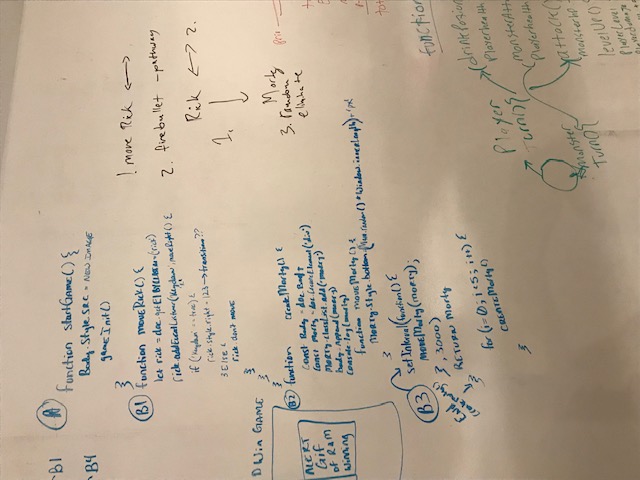 B1
B4
A
function startGame() {
Body.Style SRC = NEW IMAGE
gameInit()
}
}
B1 function moveRick() {
let rick = doc.getElByClass = (rick)
rick.addEventListener(Keydown, moveRight() {
if (!Keydown == true) {
rick.style.right = 123 → transition??
} ELSE {
rick.don't move
}
}
}
B2 function createMorty() {
Const Body = doc.Body
Const Morty = doc.createElement('div')
MORTY.classList.add('morty')
body.append(morty)
console.log(morty)
function moveMorty() {
MORTY.Style.bottom = (Math.random() * Window.innerLength) + 'px'
}
B3
setInterval(function() {
MOVEMorty(morty);
}, 3000)
RETURN Morty
End
createmorty()
for (i=0; i<5; i++) {
CREATEMorty()
}
D Win GAME
ALERT
Gif
of RAM
Winning
1. move Rick ↔
2. firebullet - pathway
Rick ↔ 2.
1.
Morty
3. random
eliminate
function
Player
Turn() {
Monster
Turn() {
drinkPotion
Playerhealth
monsterAtta
Playerhealth
attack()
monsterhp
levelUp()
PlayerLevel